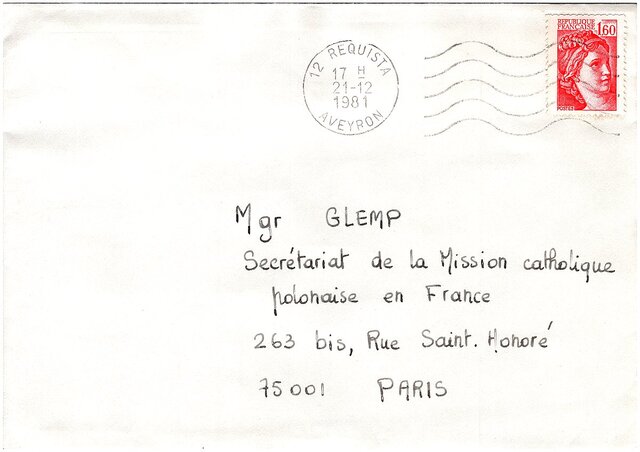 12 REQUISTA
17 H
21-12
1981
AVEYRON
REPUBLIQUE
FRANÇAISE 1,60
Mgr GLEMP
Secrétariat de la Mission catholique
polonaise en France
263 bis, Rue Saint. Honoré
75001 PARIS